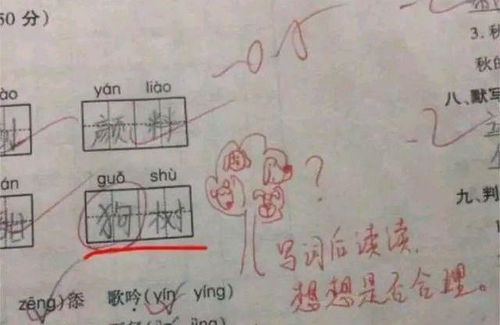 50 分)
3. 秋
秋的
yán liào
颜料
八、默写
guǒ shù
狗树
?
九、判
写词后读读,
想想是否合理。
zēng)添 歌吟(yín yíng)